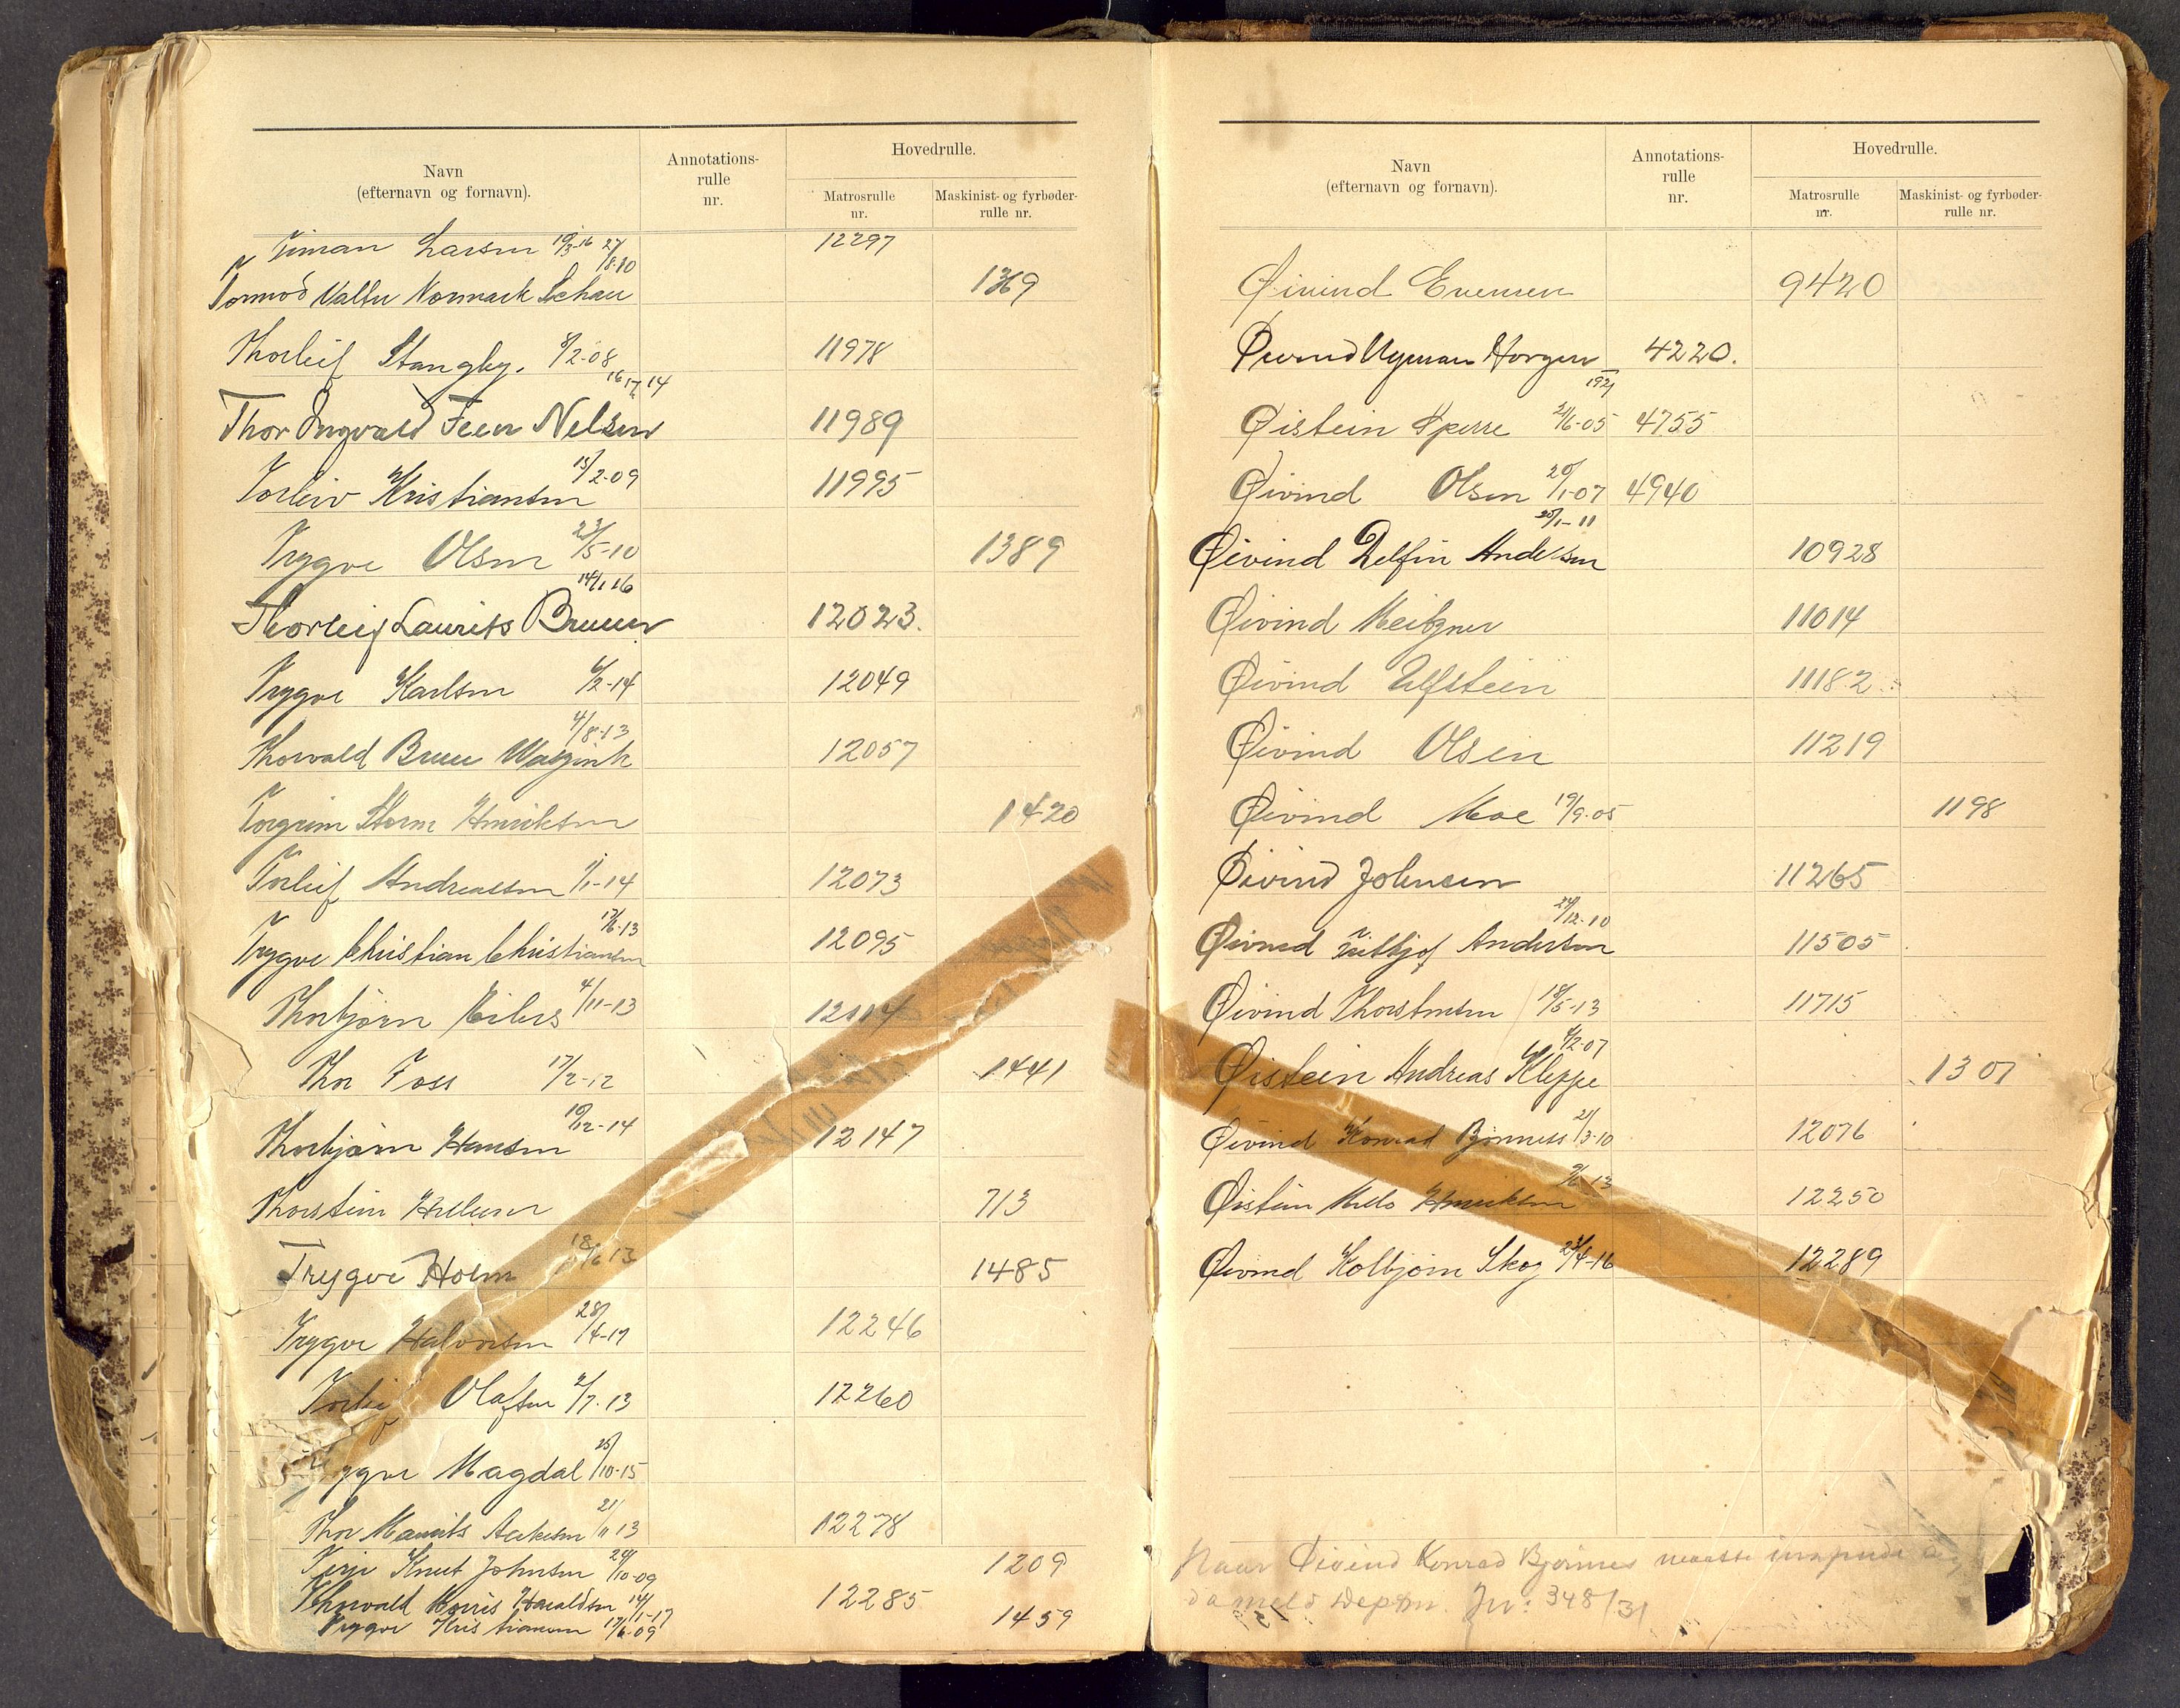 Navn
(efternavn og fornavn).
Annotations-
rulle
nr.
Hovedrulle.
Matrosrulle
nr.
Maskinist- og fyrbøder-
rulle nr.
Timan Larsen 19/3-16 12297
27/8-10
Tormod Valter Normack Schau 1369
Thorleif Stangby. 8/2-08 11978
16/12 14
Thor Ingvald Feen Nelsen 11989
15/2-09
Torleiv Kristiansen 11995
Trygve Olsen 23/5-10 1389
14/1 16
Thorleif Laurits Bruun 12023.
Trygve Karlsen 6/2-14 12049
4/8-13
Thorvald Bruu 12057
Torgrim Storm Henriksen 1420
Torleif Andreassen 1/1-14 12073
17/6-13
Trygve Christian Christiansen 12095
Thorbjørn Eilers 4/11-13 12114
Thor Foss 17/2-12 1441
19/12-14
Thorbjørn Hansen 12147
Thorstein Hellesen 713
Trygve Holm 18/6 13 1485
Trygve Halvorsen 28/4-17 12246
Torleif Olafsen 2/7-13 12260
ygve Magdal 25/10-15
Thor Maurits 21/11 13 12278
Terje Knut Johnsen 24/10-09 1209
Thorvald Haraldsen 14/1-17 12285
Trygve Kristiansen 17/6-09 1459
Navn
(efternavn og fornavn).
Annotations-
rulle
nr.
Hovedrulle.
Matrosrulle
nr.
Maskinist- og fyrbøder-
rulle nr.
Øivind Evensen 9420
Øivind Nyman Horgen 4220.
1921
Øistein Sperre 21/6-05 4755
Øivind Olsen 20/1-07 4940
25/1-11
Øivind Delfin Andersen 10928
Øivind Meibner 11014
Øivind Ulfstein 11182
Øivind Olsen 11219
Øivind Moe 19/9-05 1198
Øivind Johnsen 11265
24/12-10
Øivind Fritkjof Andersen 11505
Øivind Thorstensen 18/5-13 11715
4/2-07
Øistein Andreas Kleppe 1301
Øivind Konrad Bjønness 21/3-10 12076
9/6-13
Øistein Melo Henriksen 12250
Øivind Kolbjørn Skog 23/4-16 12289
Naar Øivind Konrad Bjørnnes
da meld Deptm. Jnr: 348/31